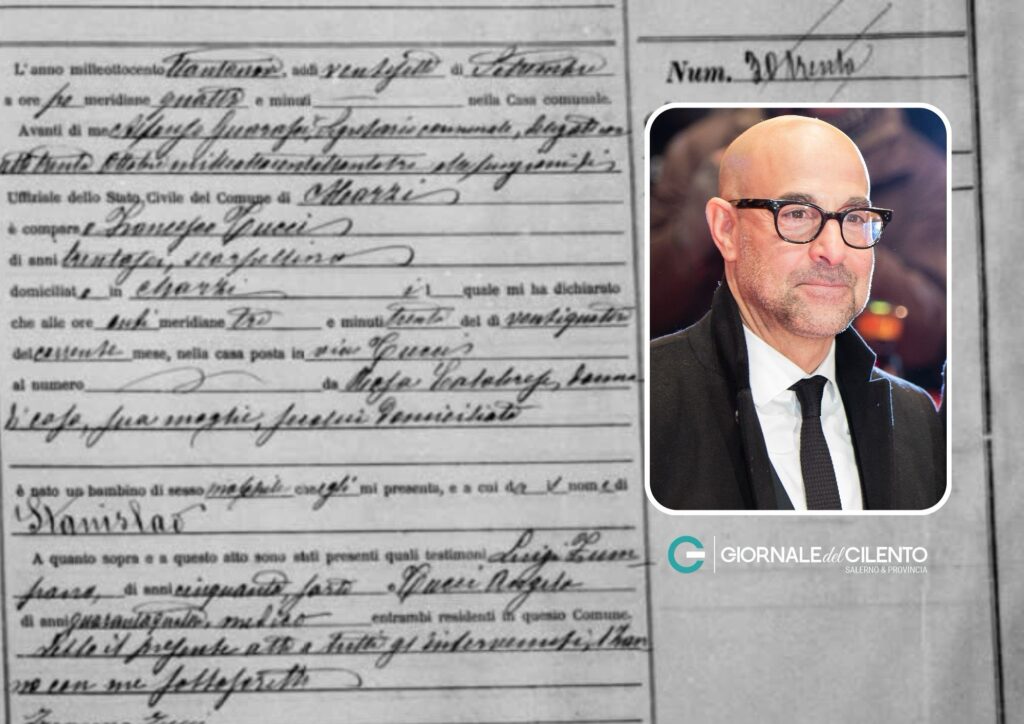 L'anno milleottocento, addì ventisette di Settembre
a ore pe meridiane quattro e minuti nella Casa comunale.
Avanti di me Alfonso Guarasci, Segretario comunale, delegato con
atto trenta Ottobre milleottocento
Uffiziale dello Stato Civile del Comune di Marzi
è comparso Francesco Tucci
di anni trentasei, scarpellino
domiciliato in Marzi il quale mi ha dichiarato
che alle ore anti meridiane tre e minuti trenta del dì ventiquattro
del corrente mese, nella casa posta in via Tucci
al numero da Rosa Calabrese, donna
di casa, sua moglie, seco lui domiciliata
è nato un bambino di sesso maschile che egli mi presenta, e a cui dà il nome di
Stanislao
A quanto sopra e a questo atto sono stati presenti quali testimoni Luigi Zum
pano, di anni cinquanta, sarto Tucci Angelo
di anni, medico entrambi residenti in questo Comune.
Letto il presente atto a tutti gl'intervenuti, l'han
no con me sottoscritto
Num. 70 trenta
GIORNALE del CILENTO
SALERNO & PROVINCIA